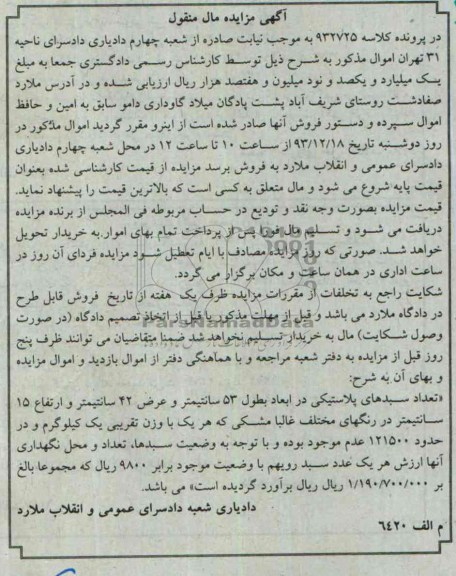 آگهی مزایده مال منقول
در پرونده کلاسه ۹۳۲۷۲۵ به موجب نیابت صادره از شعبه چهارم دادیاری دادسرای ناحیه
۳۱ تهران اموال مذکور به شرح ذیل توسط کارشناس رسمی دادگستری جمعا به مبلغ
یک میلیارد و یکصد و نود میلیون و هفتصد هزار ریال ارزیابی شده و در آدرس ملارد
صفادشت روستای شریف آباد پشت پادگان میلاد گاوداری دامو سابق به امین و حافظ
اموال سپرده و دستور فروش آنها صادر شده است از اینرو مقرر گردید اموال مذکور در
روز دوشنبه تاریخ ۹۳/۱۲/۱۸ از ساعت ۱۰ تا ساعت ۱۲ در محل شعبه چهارم دادیاری
دادسرای عمومی و انقلاب ملارد به فروش برسد مزایده از قیمت کارشناسی شده بعنوان
قیمت پایه شروع می شود و مال متعلق به کسی است که بالاترین قیمت را پیشنهاد نماید.
قیمت مزایده بصورت وجه نقد و تودیع در حساب مربوطه فی المجلس از برنده مزایده
دریافت می شود و تسلیم مال فوق پس از پرداخت تمام بهای اموار به خریدار تحویل
خواهد شد. صورتی که روز مزایده مصادف با ایام تعطیل شود مزایده فردای آن روز در
ساعت اداری در همان ساعت و مکان برگزار می گردد.
شکایت راجع به تخلفات از مقررات مزایده ظرف یک هفته از تاریخ فروش قابل طرح
در دادگاه ملارد می باشد و قبل از مهلت مذکور یا قبل از اتخاذ تصمیم دادگاه (در صورت
وصول شکایت) مال به خریدار تسلیم نخواهد شد ضمنا متقاضیان می توانند ظرف پنج
روز قبل از مزایده به دفتر شعبه مراجعه و با هماهنگی دفتر از اموال بازدید و اموال مزایده
و بهای آن به شرح:
«تعداد سبدهای پلاستیکی در ابعاد بطول ۵۳ سانتیمتر و عرض ۴۲ سانتیمتر و ارتفاع ۱۵
سانتیمتر در رنگهای مختلف غالبا مشکی که هر یک با وزن تقریبی یک کیلوگرم و در
حدود ۱۲۱۵۰۰ عدم موجود بوده و با توجه به وضعیت سبدها، تعداد و محل نگهداری
آنها ارزش هر یک عدد سبد رویهم با وضعیت موجود برابر ۹۸۰۰ ریال که مجموعا بالغ
بر ۱/۱۹۰/۷۰۰/۰۰۰ ریال ریال برآورد گردیده است» می باشد.
دادیاری شعبه دادسرای عمومی و انقلاب ملارد
م الف ۶۴۲۰
ParsNamadData